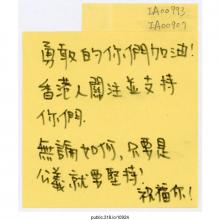 IA00993
IA00907
勇敢的你們加油!
香港人關注並支持
你們.
無論如何,只要是
公義就要堅持!
祝福你!
public.318.io/10924